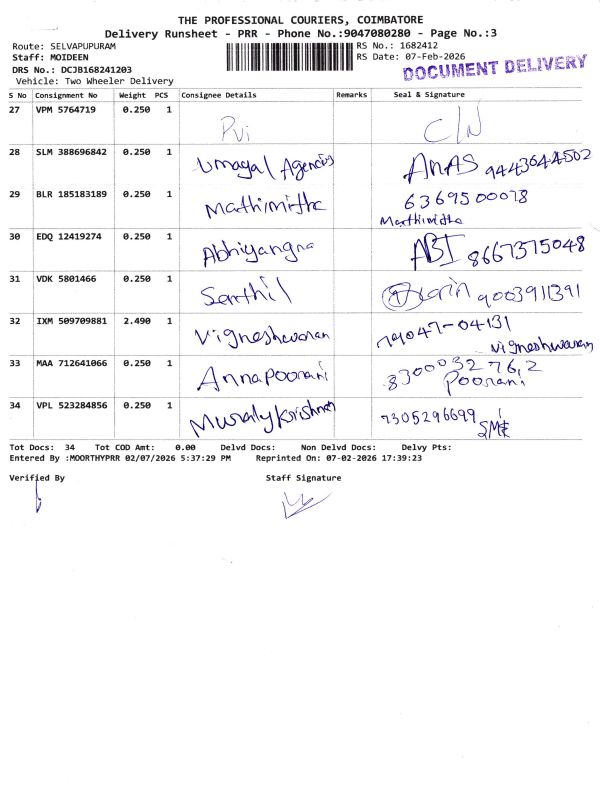 THE PROFESSIONAL COURIERS, COIMBATORE
Delivery Runsheet - PRR - Phone No.:9047080280 - Page No.:3
Route: SELVAPUPURAM RS No.: 1682412
Staff: MOIDEEN RS Date: 07-Feb-2026
DRS No.: DCJB168241203 DOCUMENT DELIVERY
Vehicle: Two Wheeler Delivery
S No Consignment No Weight PCS Consignee Details Remarks Seal & Signature
27 VPM 5764719 0.250 1
Pvi C/N
28 SLM 388696842 0.250 1
Umayal Agencies ANAS 9443644502
29 BLR 185183189 0.250 1
Mathimitha 6369500078
Mathimitha
30 EDQ 12419274 0.250 1
Abhiyangna ABI 8667375048
31 VDK 5801466 0.250 1
Senthil 9003911391
32 IXM 509709881 2.490 1
Vigneshwaran 79047-04131
Vigneshwaran
33 MAA 712641066 0.250 1
Annapoorani 8300032762
Poorani
34 VPL 523284856 0.250 1
Muralykrishnan 9305296699
Tot Docs: 34 Tot COD Amt: 0.00 Delvd Docs: Non Delvd Docs: Delvy Pts:
Entered By :MOORTHYPRR 02/07/2026 5:37:29 PM Reprinted On: 07-02-2026 17:39:23
Verified By Staff Signature